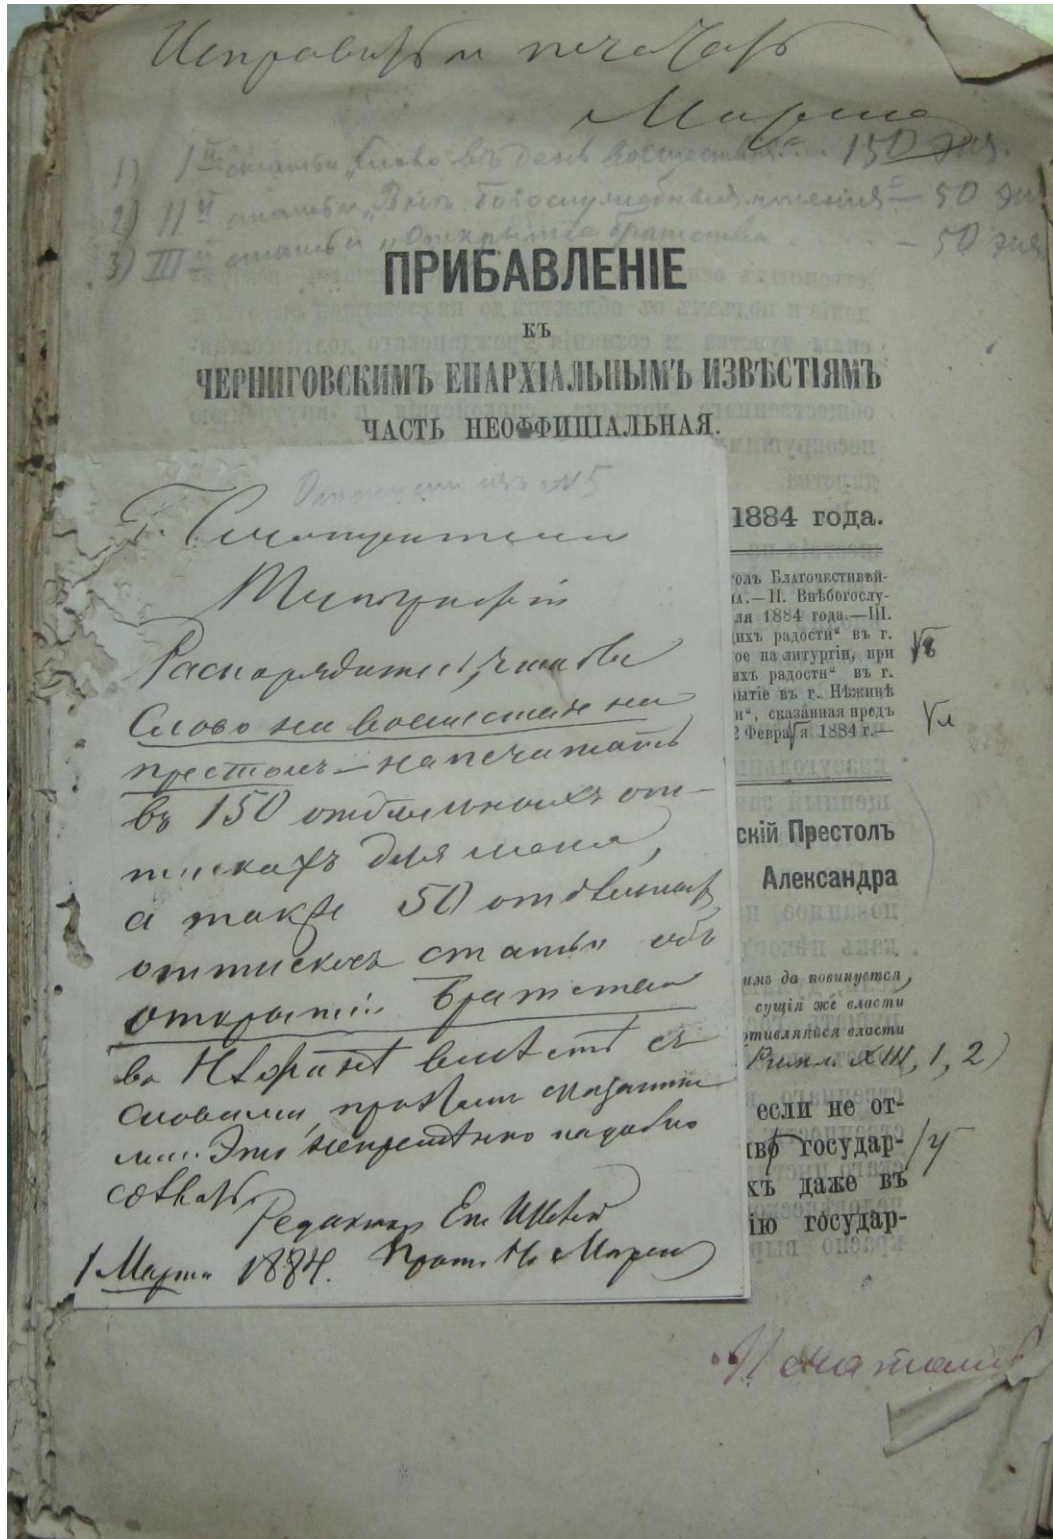 Исправить и печатать
1) Iй статьи „Слово въ день восшествия“ 150 экз.
2) IIй статьи „Внѣбогослужебныя чтения“ — 50 эк
3) IIIй статьи „Открытіе братства — 50 экз
ПРИБАВЛЕНІЕ
КЪ
ЧЕРНИГОВСКИМЪ ЕПАРХІАЛЬНЫМЪ ИЗВѢСТІЯМЪ
ЧАСТЬ НЕОФФИЦІАЛЬНАЯ.
1884 года.
толъ Благочестивѣй-
—II. Внѣбогослу-
ля 1884 года.—III.
ихъ радости“ въ г.
ое на литургіи, при
ихъ радости“ въ г.
рытіе въ г. Нѣжинѣ
и“, сказанная предъ
2 Февраля 1884 г.—
скій Престолъ
Александра
имъ да повинуется
сущія же власти
отивляйся власти
Римл. XIII, 1, 2)
если не от-
государ-
хъ даже въ
ію государ-
№ 5
Г. Смотрителю
Типографіи
Распорядитесь, чтобы
Слово на восшествіе на
престолъ — напечатать
въ 150 отдѣльныхъ от-
тискахъ для меня,
а также 50 отдѣльныхъ
оттисковъ статьи объ
открытіи Братства
въ Нѣжинѣ вмѣстѣ съ
словами,
Это непремѣнно надобно
сдѣлать.
Редакторъ
1 Марта 1884.